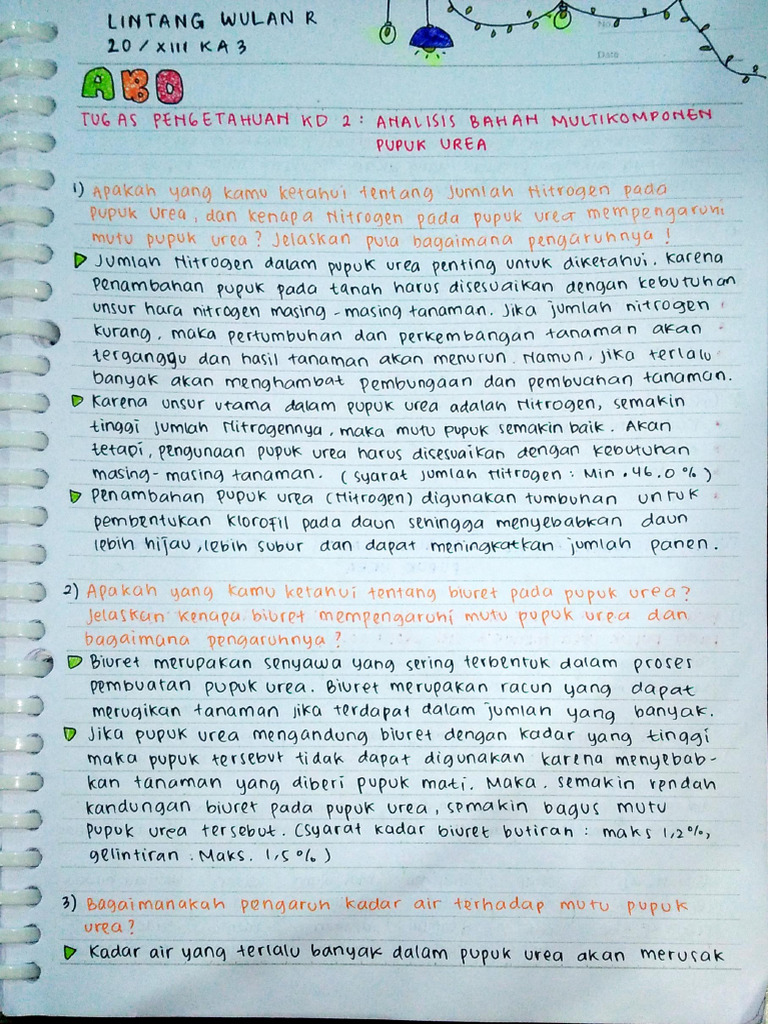 LINTANG WULAN R
20 / XIII KA 3
No
Date
ABO
TUGAS PENGETAHUAN KD 2 : ANALISIS BAHAN MULTIKOMPONEN
PUPUK UREA
1) Apakah yang kamu ketahui tentang Jumlah Nitrogen pada
pupuk Urea, dan kenapa Nitrogen pada pupuk urea mempengaruhi
mutu pupuk urea? Jelaskan pula bagaimana pengaruhnya !
Jumlah Nitrogen dalam pupuk urea penting untuk diketahui, karena
penambahan pupuk pada tanah harus disesuaikan dengan kebutuhan
unsur hara nitrogen masing-masing tanaman. Jika jumlah nitrogen
kurang, maka pertumbuhan dan perkembangan tanaman akan
terganggu dan hasil tanaman akan menurun. Namun, jika terlalu
banyak akan menghambat pembungaan dan pembuahan tanaman.
Karena unsur utama dalam pupuk urea adalah Nitrogen, semakin
tinggi jumlah Nitrogennya, maka mutu pupuk semakin baik. Akan
tetapi, pengunaan pupuk urea harus disesuaikan dengan kebutuhan
masing-masing tanaman. (Syarat jumlah Nitrogen : Min. 46.0%)
Penambahan pupuk urea (Nitrogen) digunakan tumbuhan untuk
pembentukan klorofil pada daun sehingga menyebabkan daun
lebih hijau, lebih subur dan dapat meningkatkan jumlah panen.
2) Apakah yang kamu ketahui tentang biuret pada pupuk urea?
Jelaskan kenapa biuret mempengaruhi mutu pupuk urea dan
bagaimana pengaruhnya ?
Biuret merupakan senyawa yang sering terbentuk dalam proses
pembuatan pupuk urea. Biuret merupakan racun yang dapat
merugikan tanaman jika terdapat dalam jumlah yang banyak.
Jika pupuk urea mengandung biuret dengan kadar yang tinggi
maka pupuk tersebut tidak dapat digunakan karena menyebab-
kan tanaman yang diberi pupuk mati. Maka, semakin rendah
kandungan biuret pada pupuk urea, semakin bagus mutu
pupuk urea tersebut. (Syarat kadar biuret butiran : maks 1,2%,
gelintiran : Maks. 1,5%)
3) Bagaimanakah pengaruh kadar air terhadap mutu pupuk
urea?
Kadar air yang terlalu banyak dalam pupuk urea akan merusak